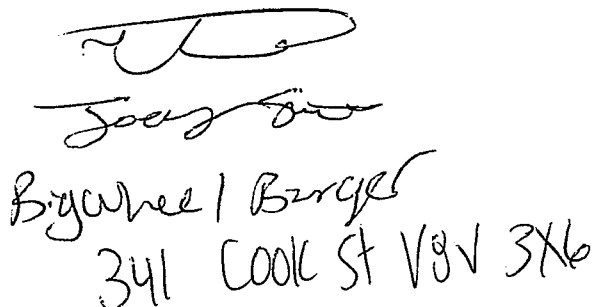 Joey
Bigwheel Burger
341 Cook St V8V 3X6